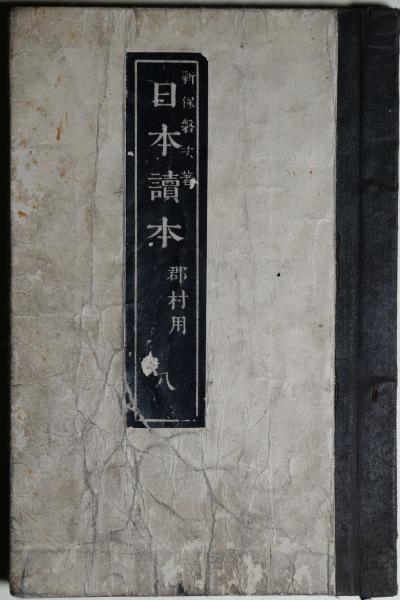 新保磐次著
日本讀本
郡村用
八